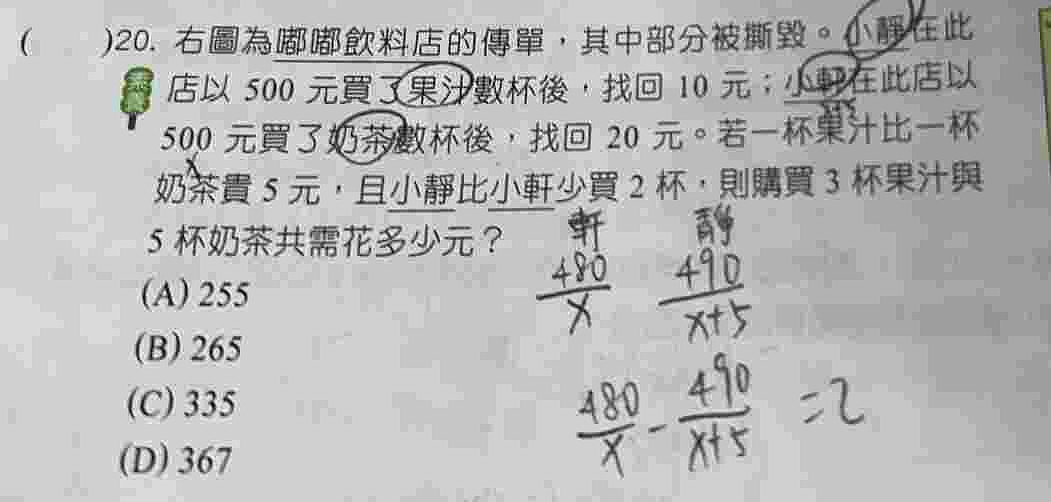 (　　)20. 右圖為嘟嘟飲料店的傳單，其中部分被撕毀。小靜在此
店以 500 元買了果汁數杯後，找回 10 元；小軒在此店以
500 元買了奶茶數杯後，找回 20 元。若一杯果汁比一杯
奶茶貴 5 元，且小靜比小軒少買 2 杯，則購買 3 杯果汁與
5 杯奶茶共需花多少元？
(A) 255
(B) 265
(C) 335
(D) 367
x
軒 靜
480/x 490/x+5
480/x - 490/x+5 = 2